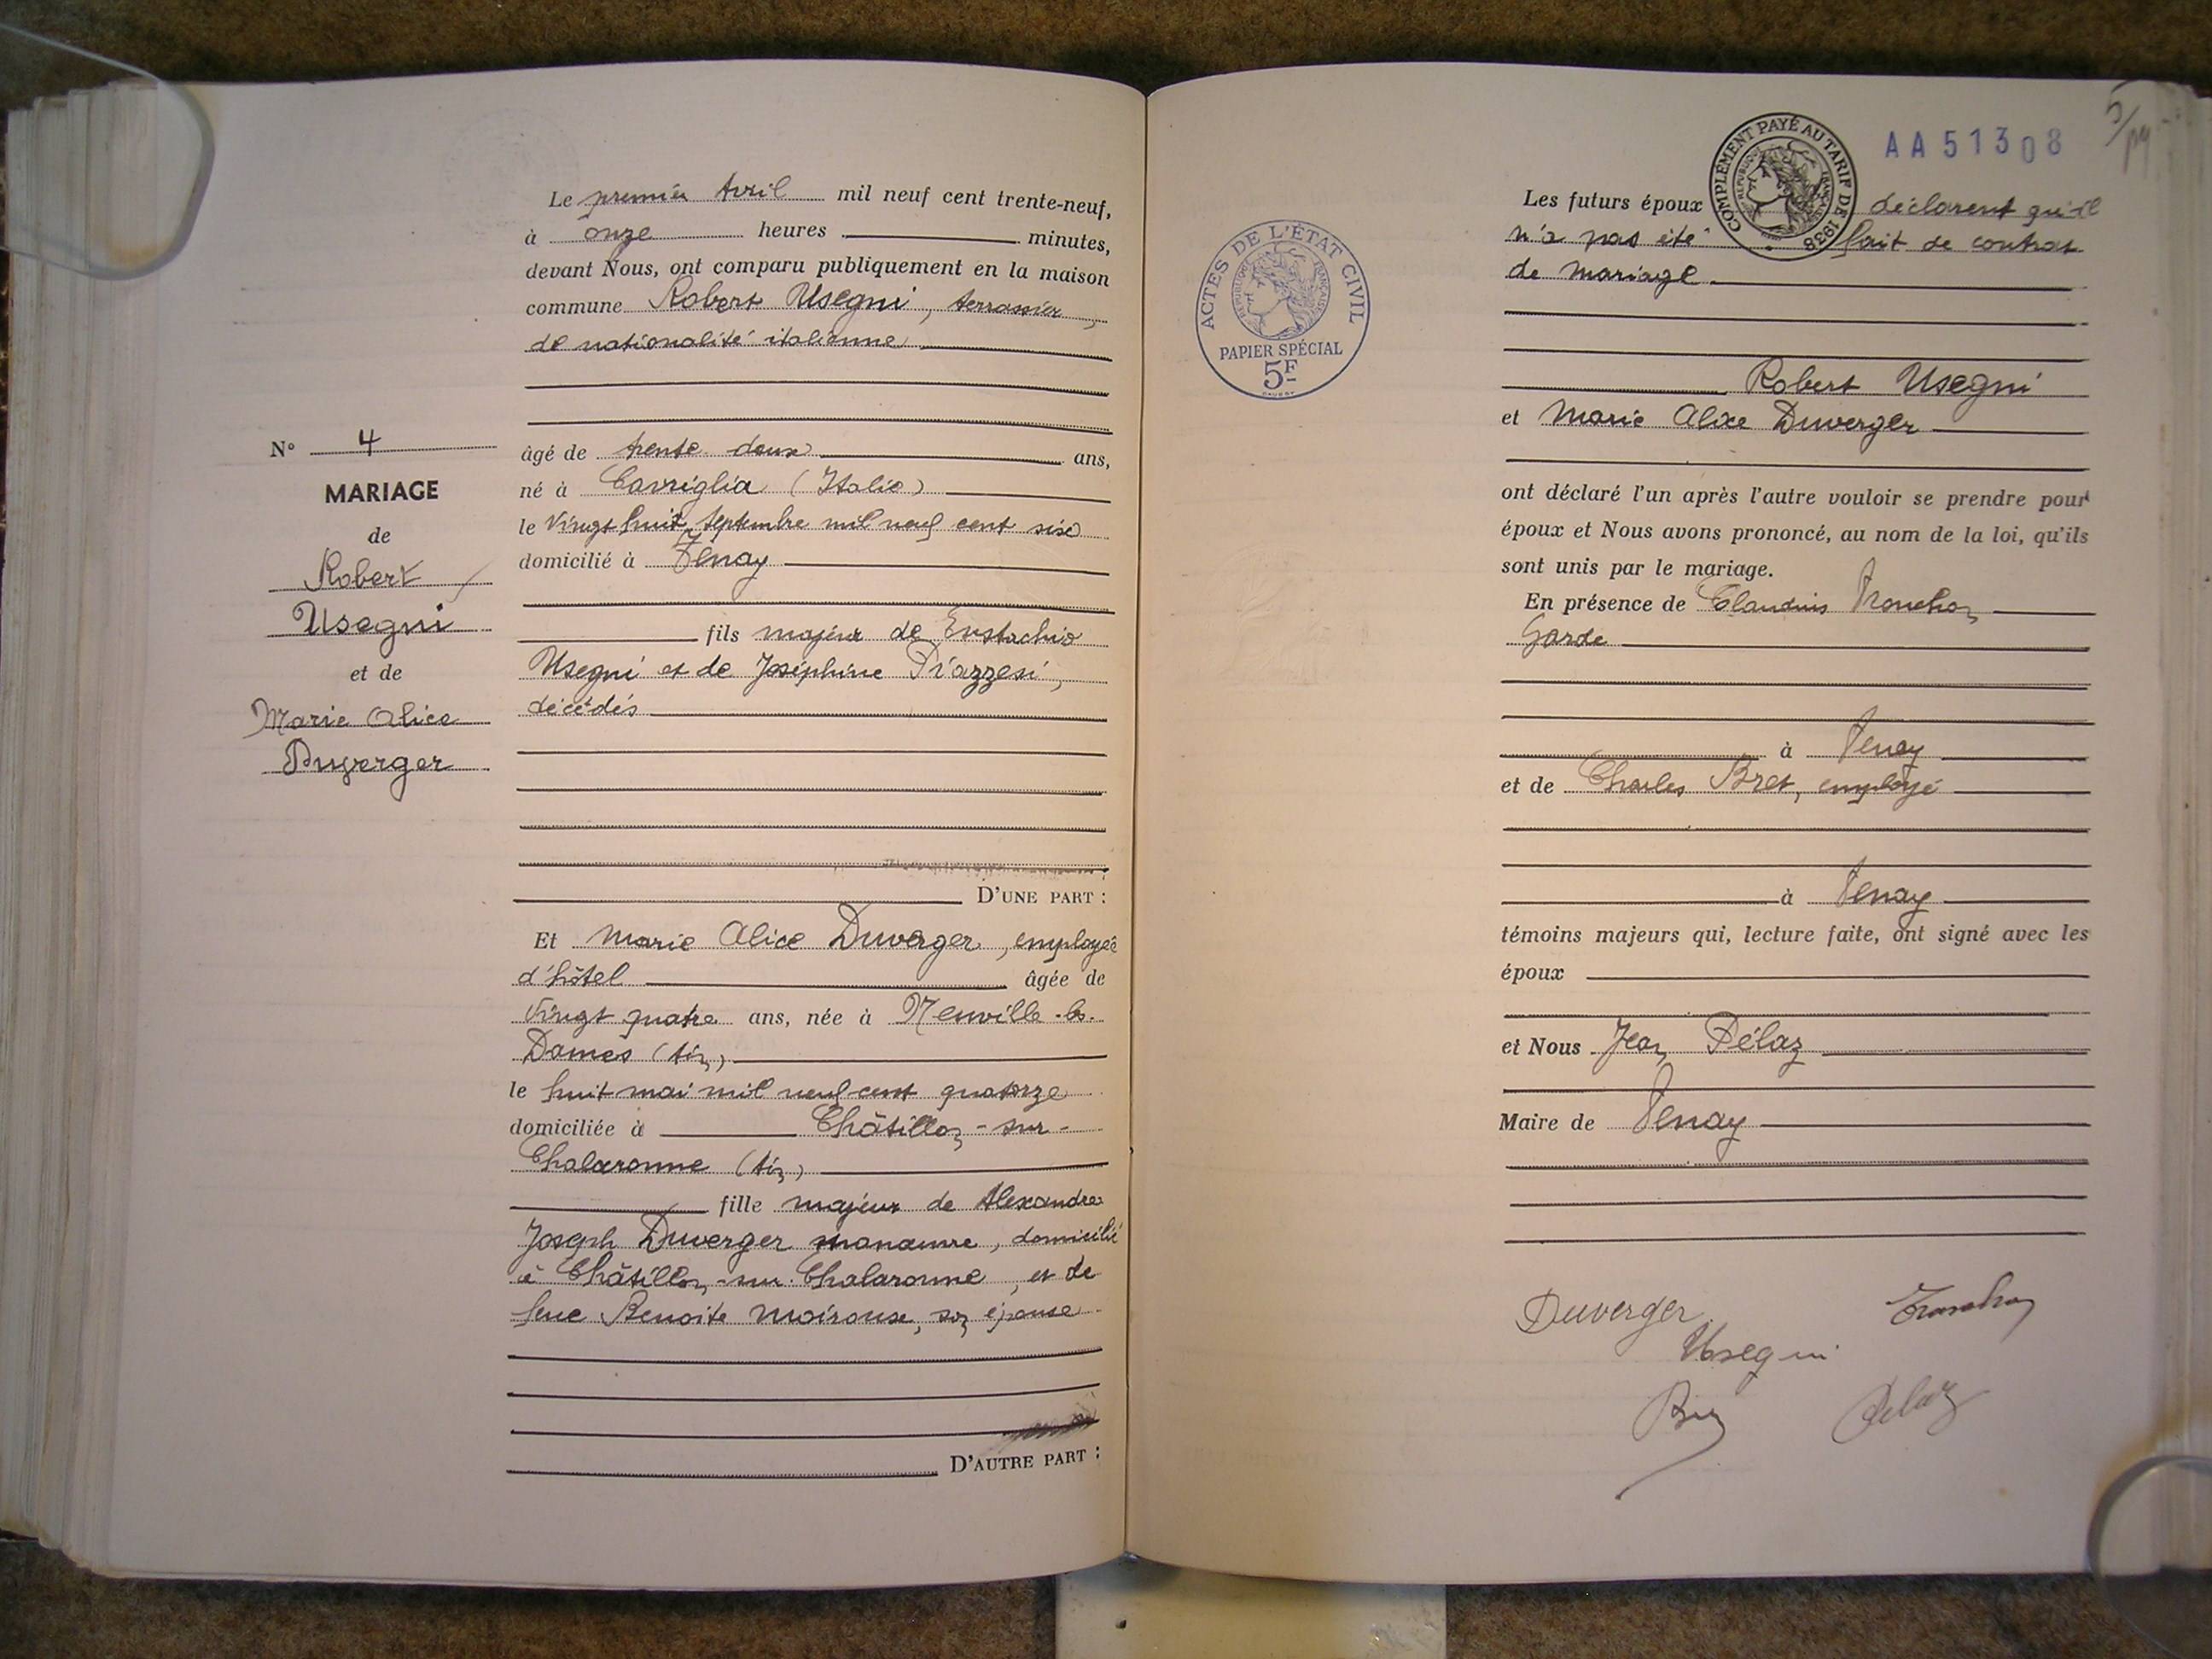 N° 4
MARIAGE
de
Robert
Usegni
et de
Marie Alice
Duverger
Le premier Avril mil neuf cent trente-neuf,
à onze heures minutes,
devant Nous, ont comparu publiquement en la maison
commune Robert Usegni, terrassier,
de nationalité italienne
âgé de trente deux ans,
né à Cavriglia (Italie)
le Vingt huit Septembre mil neuf cent six
domicilié à Tenay
fils majeur de Eustachio
Usegni et de Joséphine Piazzesi,
décédés
D'UNE PART :
Et Marie Alice Duverger, employée
d'hôtel âgée de
Vingt quatre ans, née à Neuville-les-
Dames (Ain)
le huit mai mil neuf cent quatorze
domiciliée à Châtillon-sur-
Chalaronne (Ain)
fille majeur de Alexandre
Joseph Duverger manœuvre, domicilié
à Châtillon-sur-Chalaronne, et de
feue Benoite Moirouse, son épouse
D'AUTRE PART :
ACTES DE L'ÉTAT CIVIL
RÉPUBLIQUE FRANÇAISE
PAPIER SPÉCIAL
5F
COMPLÉMENT PAYÉ AU TARIF DE 1938
RÉPUBLIQUE FRANÇAISE
AA51308
5/
Les futurs époux déclarent qu'il
n'a pas été fait de contrat
de mariage
Robert Usegni
et Marie Alice Duverger
ont déclaré l'un après l'autre vouloir se prendre pour
époux et Nous avons prononcé, au nom de la loi, qu'ils
sont unis par le mariage.
En présence de Claudius Tronchon
Garde
à Tenay
et de Charles Bret, employé
à Tenay
témoins majeurs qui, lecture faite, ont signé avec les
époux
et Nous Jean Pélaz
Maire de Tenay
Duverger Tronchon
Usegni
Pelaz